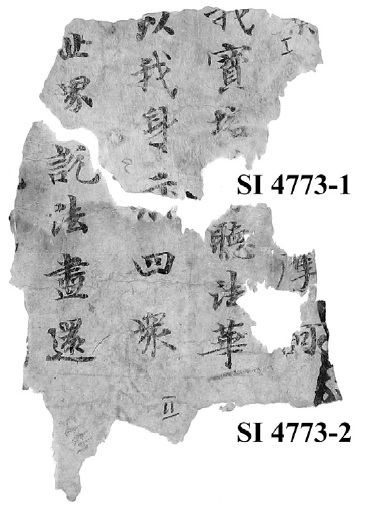 我寶塔
以我身
界
SI 4773-1
聽法華
四眾
說法盡還
SI 4773-2